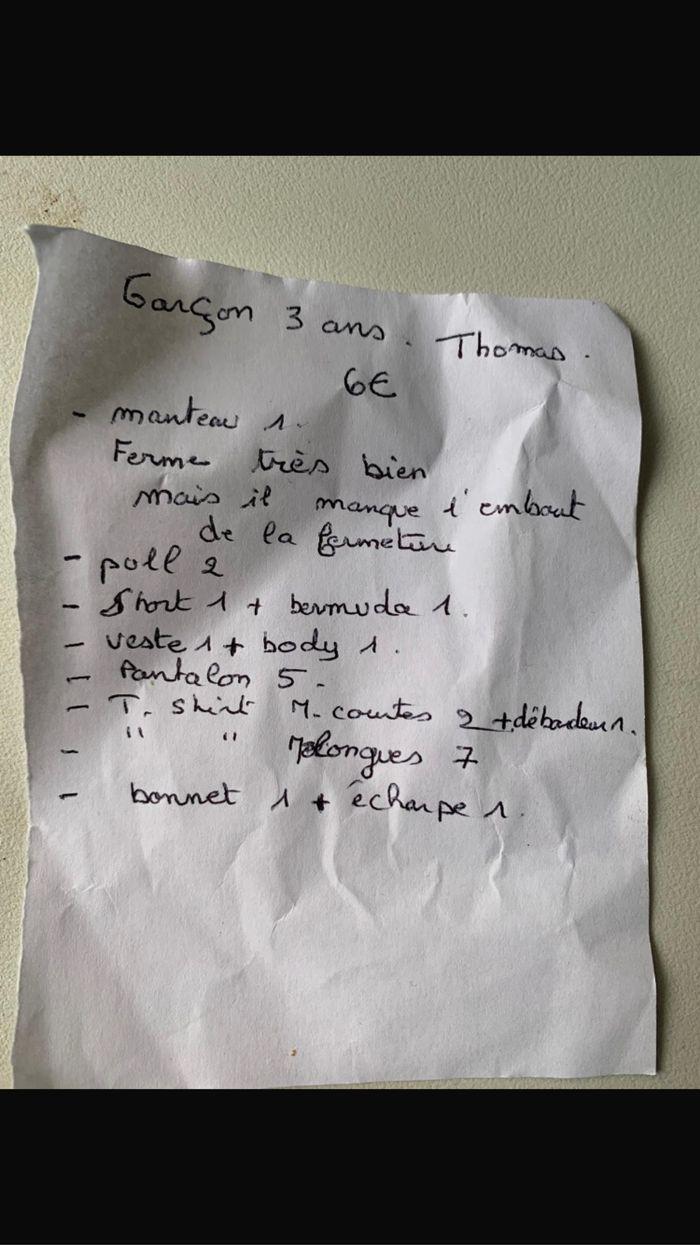 Garçon 3 ans. Thomas.
6€
- manteau 1.
Ferme très bien
mais il manque l'embout
de la fermeture
- pull 2
- Short 1 + bermuda 1.
- veste 1 + body 1.
- Pantalon 5.
- T. shirt M. courtes 2 + débardeur 1.
- " " M longues 7
- bonnet 1 + écharpe 1.